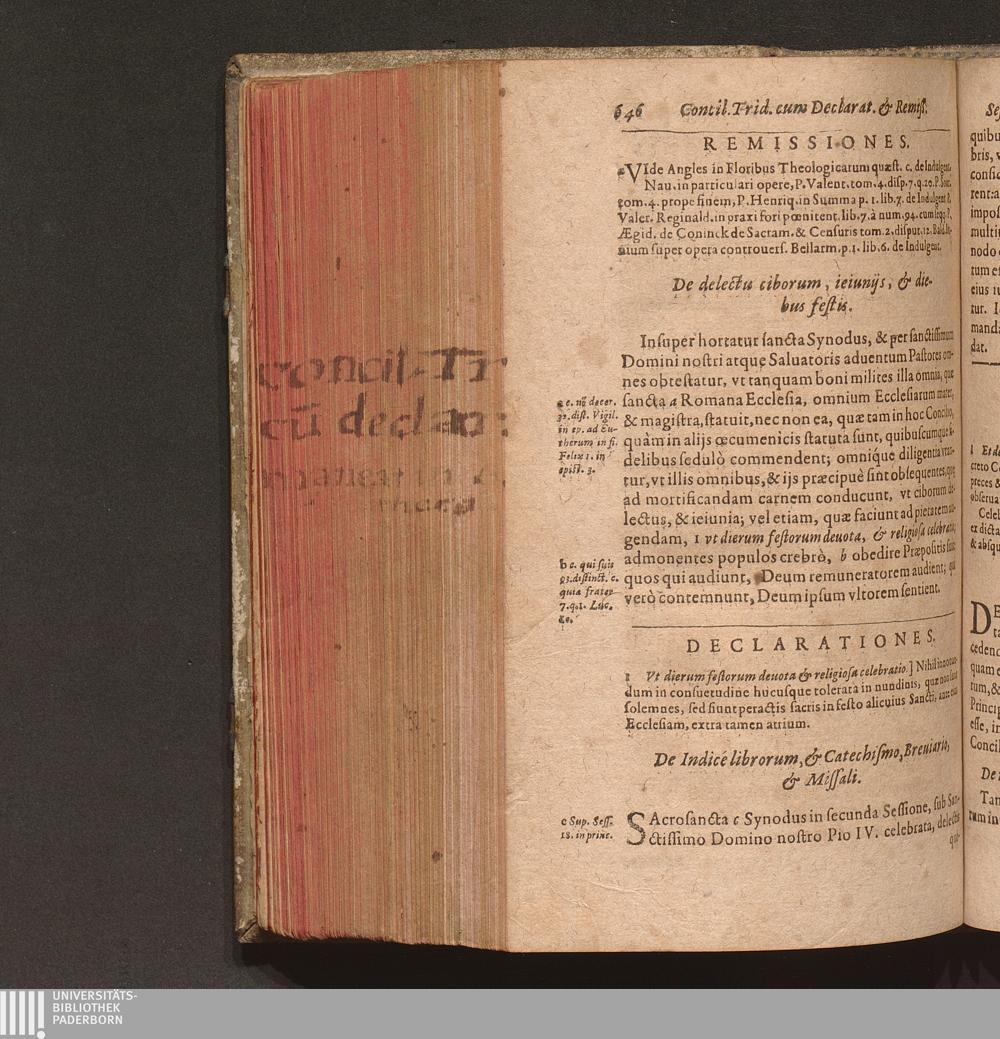 646 Concil. Trid. cum Declarat. & Remiss.
REMISSIONES.
VIde Angles in Floribus Theologicarum quæst. c. de Indulgent.
Nau. in particulari opere, P. Valent. tom. 4. disp. 7. q. 20. P. Suar.
tom. 4. prope finem, P. Henriq. in Summa p. 1. lib. 7. de Indulgent.
Valer. Reginald. in praxi fori pœnitent. lib. 7. à num. 94. cum seqq.
Ægid. de Coninck de Sacram. & Censuris tom. 2. disput. 12.
nium super opera controuers. Bellarm. p. 1. lib. 6. de Indulgent.
De delectu ciborum, ieiunijs, & die-
bus festis.
Insuper hortatur sancta Synodus, & per sanctissimum
Domini nostri atque Saluatoris aduentum Pastores om-
nes obtestatur, vt tanquam boni milites illa omnia, quę
sancta a Romana Ecclesia, omnium Ecclesiarum mater,
& magistra, statuit, nec non ea, quæ tam in hoc Concilio,
quàm in alijs œcumenicis statuta sunt, quibuscumque fi-
delibus sedulò commendent; omniq́ue diligentia vtan-
tur, vt illis omnibus, & ijs præcipuè sint obsequentes, quę
ad mortificandam carnem conducunt, vt ciborum de-
lectus, & ieiunia; vel etiam, quæ faciunt ad pietatem au-
gendam, 1 vt dierum festorum deuota, & religiosa celebratio;
admonentes populos crebrò, b obedire Præpositis suis
quos qui audiunt, Deum remuneratorem audient; qui
verò contemnunt, Deum ipsum vltorem sentient.
a c. nū decer.
12. dist. Vigil.
in ep. ad Eu-
therum in fi.
Felix 1. in
epist. 3.
b c. qui suis
93. distinct. c.
quia frater
7. q. 1. Luc.
&c.
DECLARATIONES.
1 Vt dierum festorum deuota & religiosa celebratio.] Nihil innouan-
dum in consuetudine hucusque tolerata in nundinis, quæ non sunt
solemnes, sed fiunt peractis sacris in festo alicuius Sancti, ante eius
Ecclesiam, extra tamen atrium.
De Indice librorum, & Catechismo, Breuiario,
& Missali.
SAcrosancta c Synodus in secunda Sessione, sub San-
ctissimo Domino nostro Pio IV. celebrata, delectis
qui-
c Sup. Sess.
18. in princ.
Concil. Tr
cū declar:
quibu
bris, v
multi
nodo
tum e
eius iu
tur. I
manda
dat.
1 Et de
creto Co
preces &
obserua
Celeb
ex dicta
& absqu
DE
ta
cedenc
quam e
tum, &
Princip
esse, in
Concil
De
Tan
rum in
UNIVERSITÄTS-
BIBLIOTHEK
PADERBORN